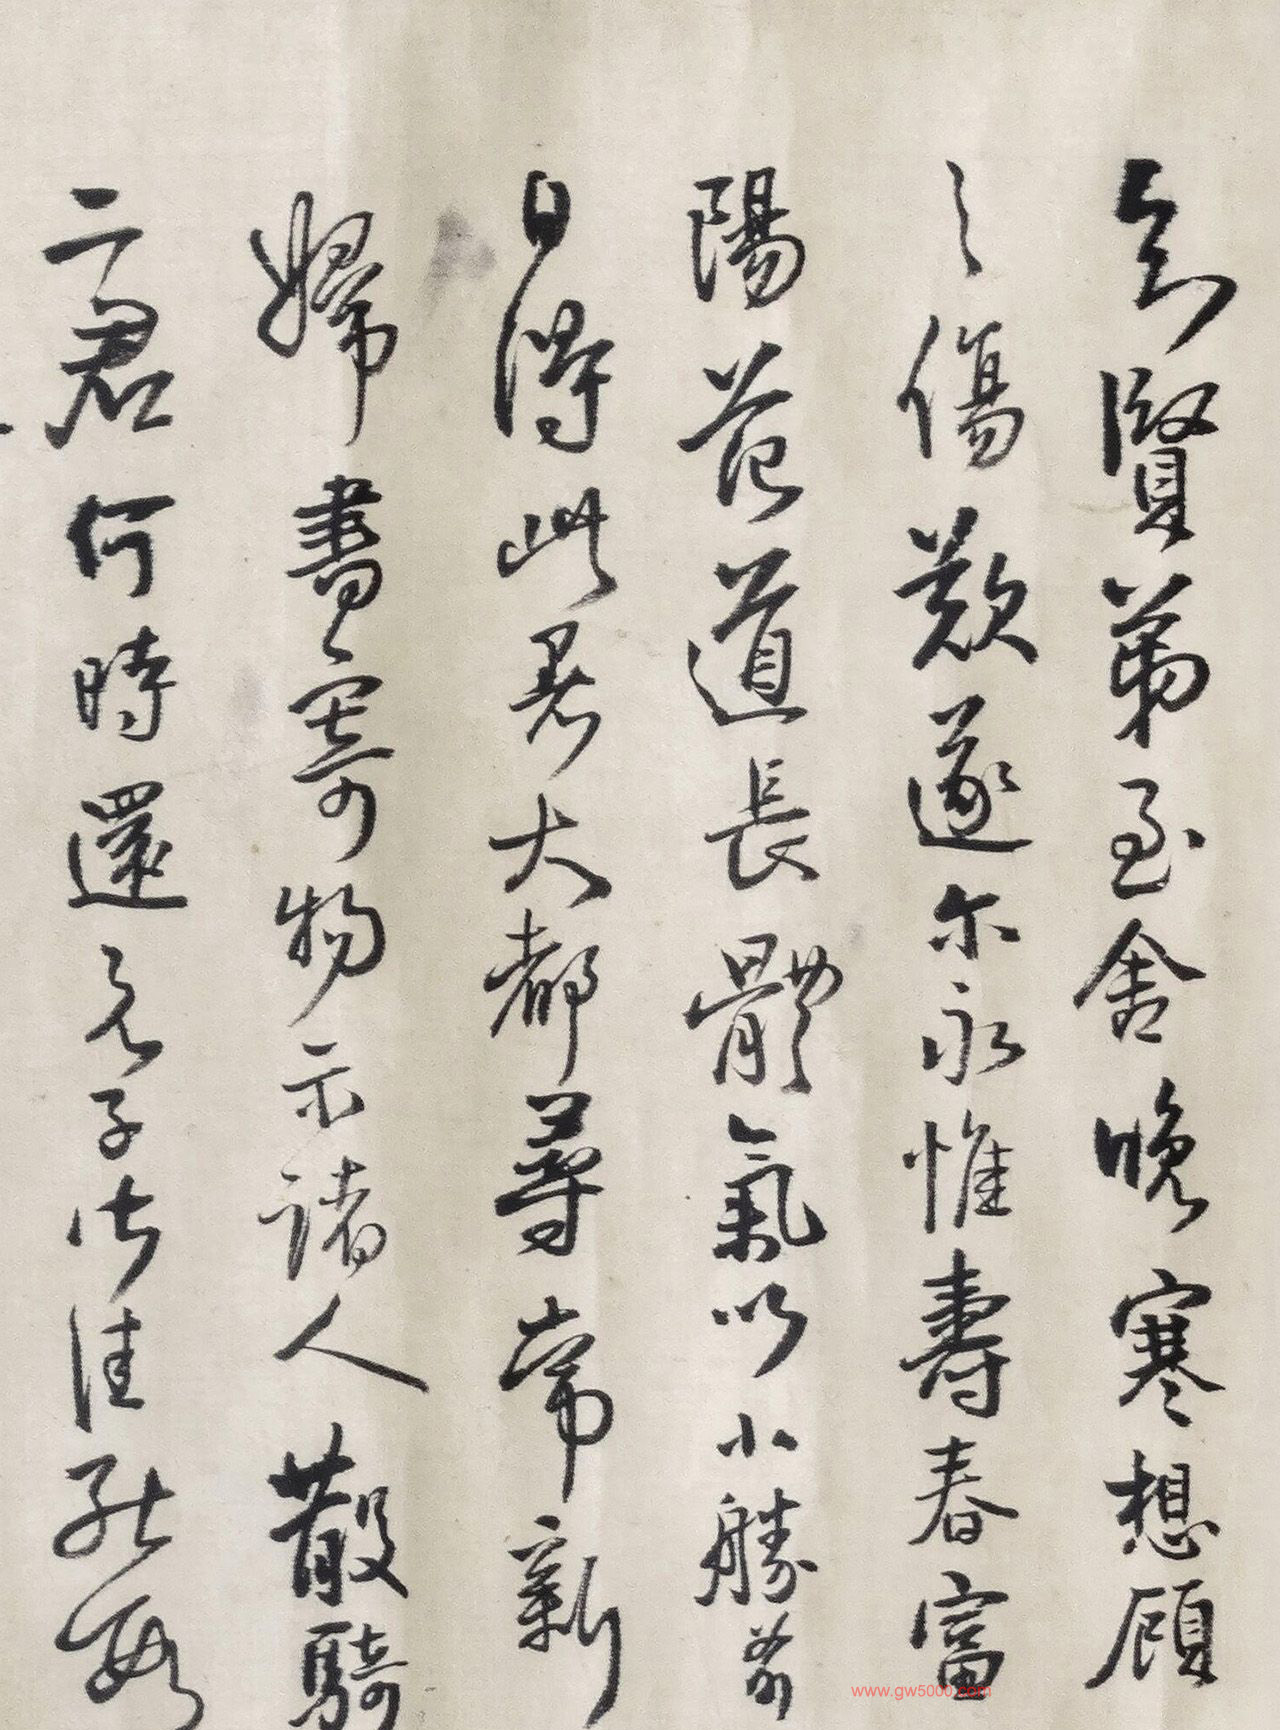 知賢弟至舍晚寒想顧
之傷歎遂尔永惟壽春富
陽范道長體氣以小勝前
日得此君大都尋常新
婦書寄物示諸人散騎
二君何時還兄子皆佳
www.gw5000.com